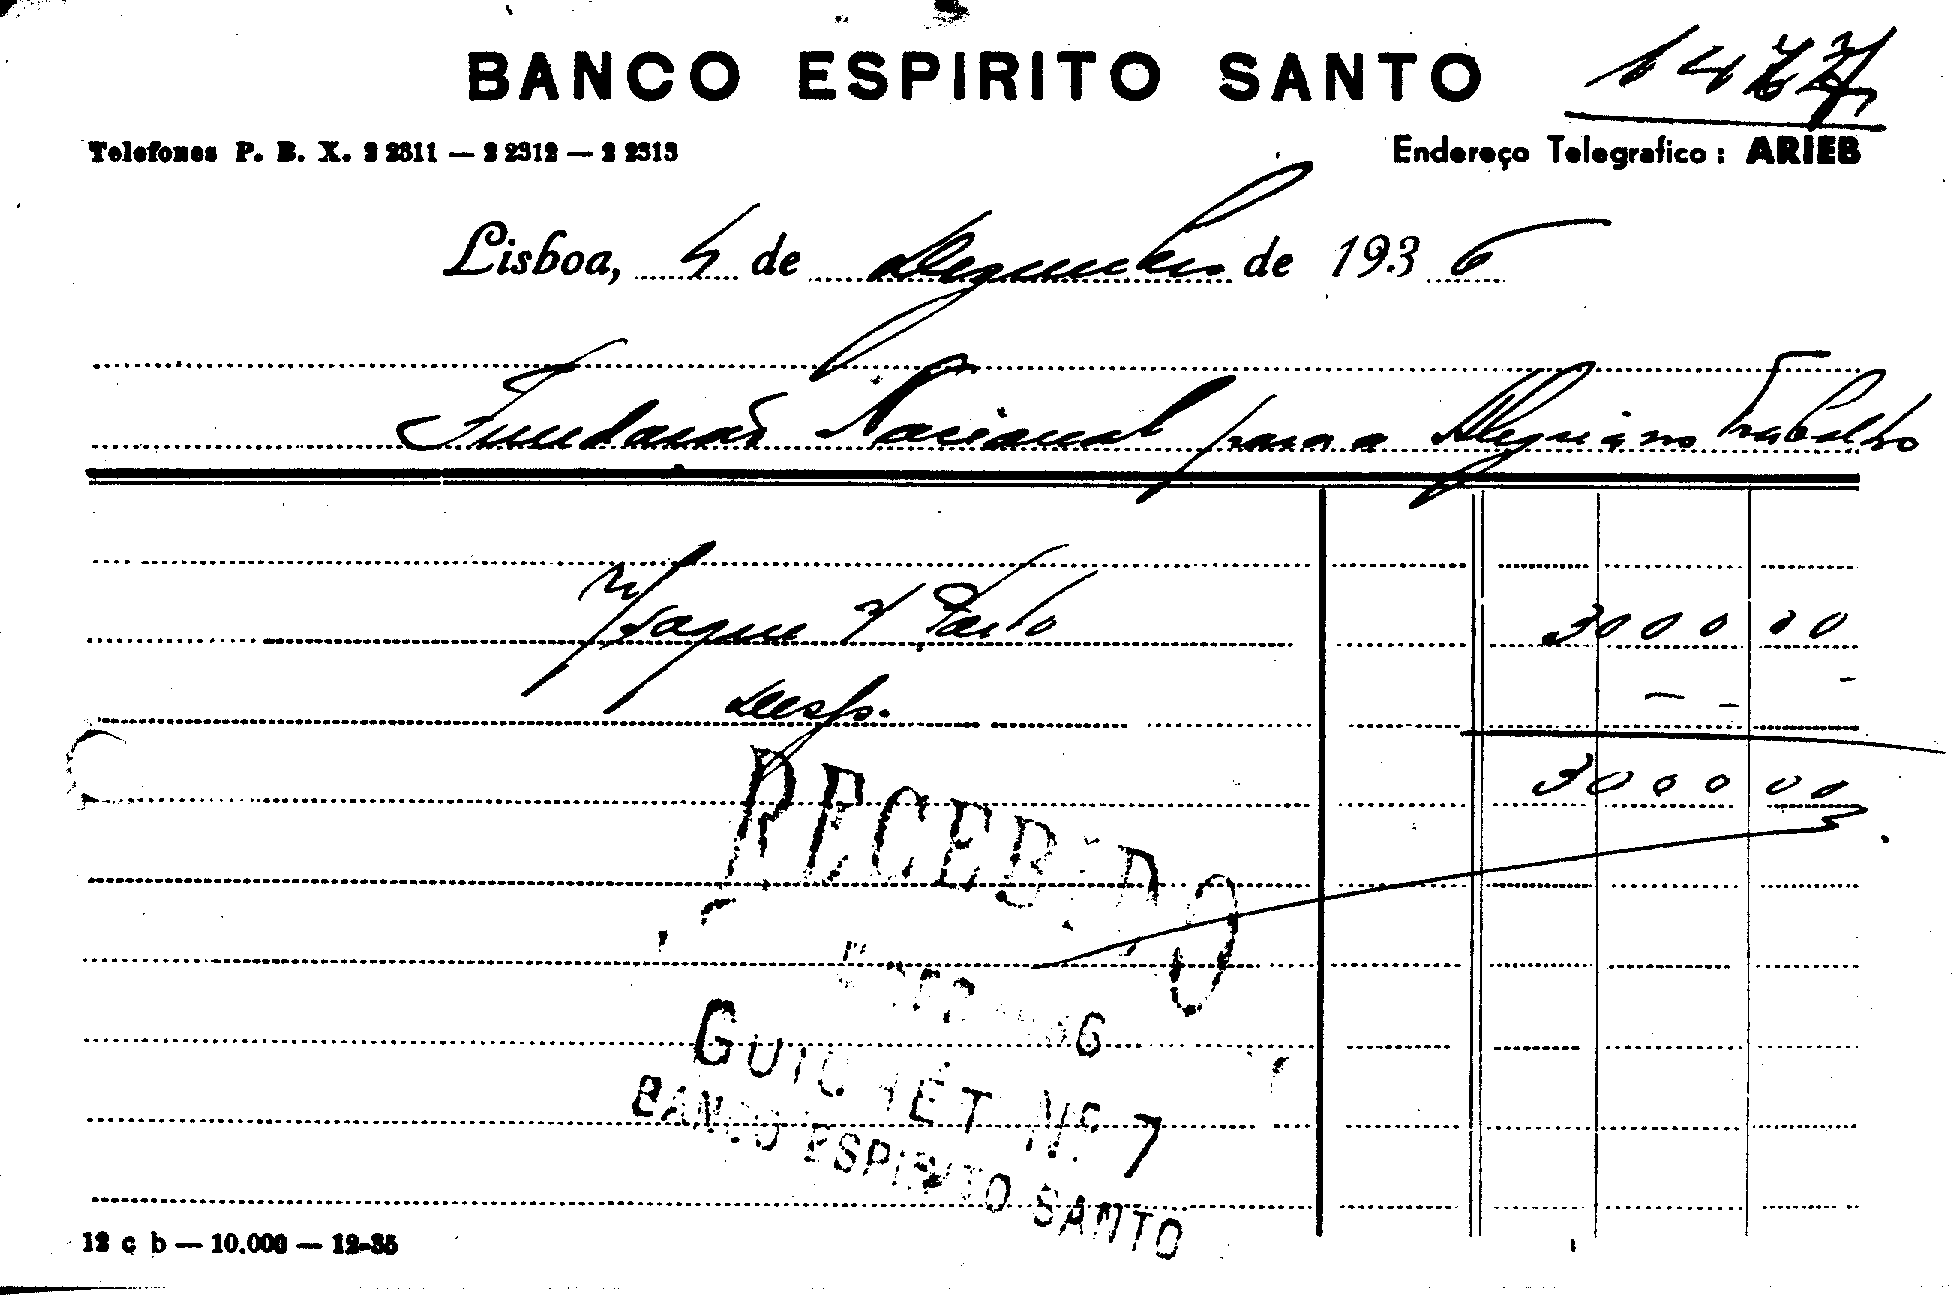 BANCO ESPIRITO SANTO
1477
Telefones P. B. X. 2 2311 — 2 2312 — 2 2313
Endereço Telegrafico : ARIEB
Lisboa, 4 de Dezembro de 1936
Fundação Nacional para a Alegria no Trabalho
n/ saque s/ Porto 3000 00
Desp. — —
3000 00
RECEBIDO
GUICHÉT Nº 7
BANCO ESPIRITO SANTO
12 c b — 10.000 — 12-35